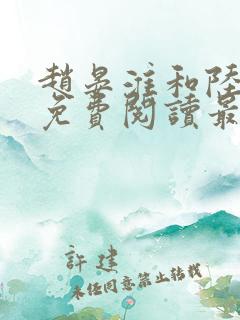 趙晏淮和陸
免費閱讀最
許建
未經同意禁止轉載